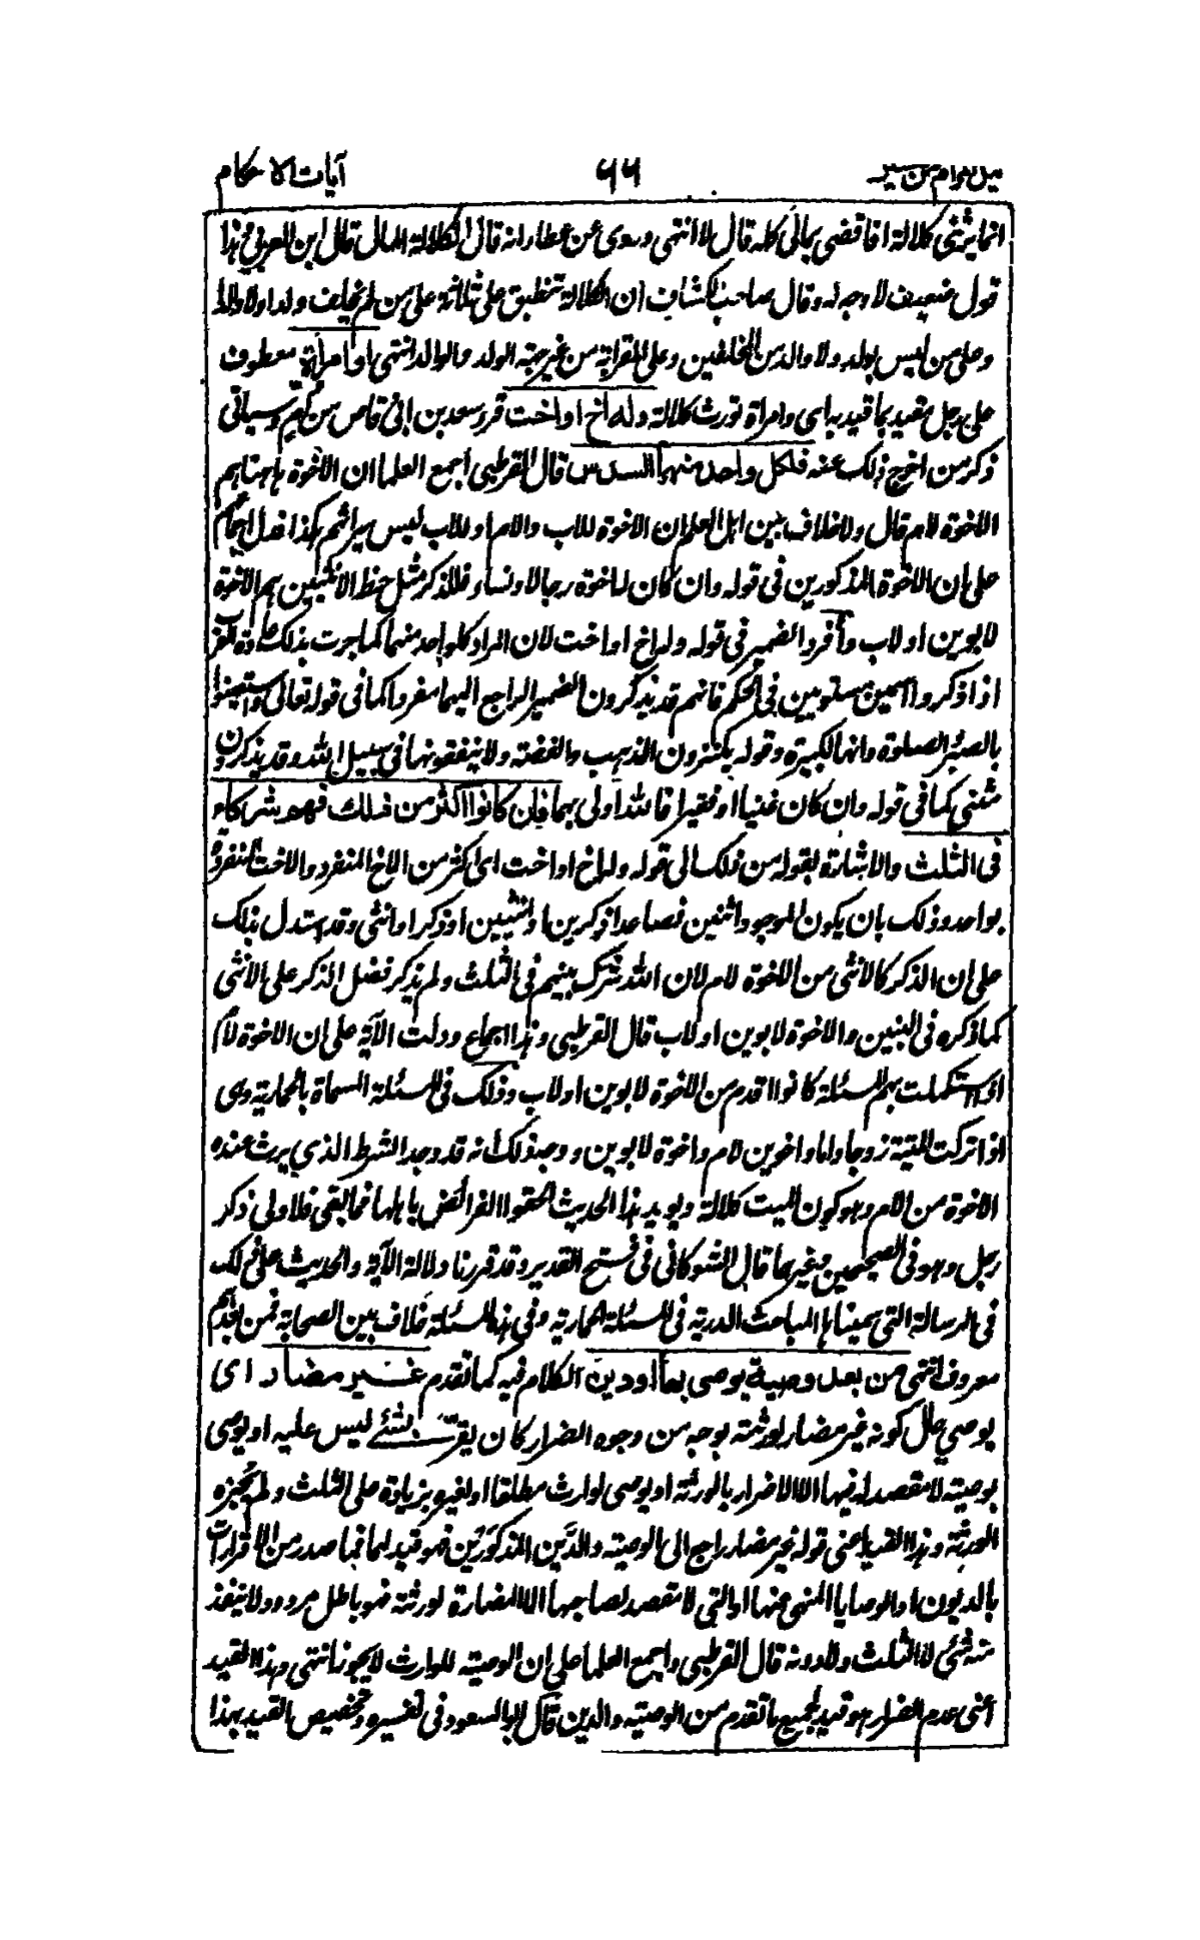 نيل المرام من تفسير ٦٦ آيات الاحكام
انما يرثنى كلالة افاقضى بمالى كله قال لا انتهى وروى عن عطاء انه قال الكلالة المال قال ابن العربي وهذا
قول ضعيف لا وجه له وقال صاحب الكشاف ان الكلالة تنطبق على ثلاثة على من لم يخلف ولدا ولا والدا
وعلى من ليس بولد ولا والد من المخلفين وعلى القرابة من غير جهة الولد والوالد انتهى او امرأة معطوف
على رجل مقيد بما قيد به اى وامراة تورث كلالة وله اخ او اخت قرء سعد بن ابى وقاص من ام وسياتى
ذكر من اخرج ذلك عنه فلكل واحد منهما السدس قال القرطبى اجمع العلماء ان الاخوة ههنا هم
الاخوة لام قال ولا خلاف بين اهل العلم ان الاخوة للاب والام او للاب ليس ميراثهم هكذا فدل اجماعهم
على ان الاخوة المذكورين فى قوله وان كان له اخوة رجالا ونساء فللذكر مثل حظ الانثيين هم الاخوة
لابوين او لاب وأفرد الضمير فى قوله وله اخ او اخت لان المراد كل واحد منهما كما جرت بذلك عادة العرب
اذا ذكروا اسمين مستويين فى الحكم فانهم قد يذكرون الضمير الراجع اليهما مفردا كما فى قوله تعالى واستعينوا
بالصبر والصلوة وانها لكبيرة وقوله يكنزون الذهب والفضة ولا ينفقونها فى سبيل الله وقد يذكرون
مثنى كما فى قوله وان كان غنيا او فقيرا فالله اولى بهما فان كانوا اكثر من ذلك فهم شركاء
فى الثلث والاشارة بقوله من ذلك الى قوله وله اخ او اخت اى اكثر من الاخ المنفرد والاخت المنفردة
بواحد وذلك بان يكون الموجود اثنين فصاعدا ذكرين او انثيين او ذكرا وانثى وقد استدل بذلك
على ان الذكر كالانثى من الاخوة لام لان الله شرك بينهم فى الثلث ولم يذكر فضل الذكر على الانثى
كما ذكره فى البنين والاخوة لابوين او لاب قال القرطبى وهذا اجماع ودلت الآية على ان الاخوة لام
اذا استكملت بهم المسئلة كانوا اقدم من الاخوة لابوين او لاب وذلك فى المسئلة المسماة بالحمارية وهى
اذا تركت الميتة زوجا واما واخوين لام واخوة لابوين ووجه ذلك انه قد وجد الشرط الذي يرث عنده
الاخوة من الام وهو كون الميت كلالة ويؤيد هذا الحديث الحقوا الفرائض باهلها فما بقى فلاولى ذكر
رجل وهو فى الصحيحين وغيرهما قال الشوكانى فى فتح القدير وقد قررنا دلالة الآية والحديث على ذلك
فى الرسالة التى سميناها المباحث الدرية فى المسئلة الحمارية وفى هذه المسئلة خلاف بين الصحابة فمن بعدهم
معروف انتهى من بعد وصية يوصى بها او دين الكلام فيه كما تقدم غير مضار اى
يوصي حال كونه غير مضار لورثته بوجه من وجوه الضرار كان يقر بشئ ليس عليه او يوصى
بوصية لا مقصد له فيها الا الاضرار بالورثة او يوصى لوارث مطلقا او لغيره بزيادة على الثلث ولم يجزه
الورثة وهذا القيد اعنى قوله غير مضار راجع الى الوصية والدَّين المذكورَين فهو قيد لهما فما صدر من الاقرارات
بالديون او الوصايا المنهى عنها او التى لا مقصد لصاحبها الا المضارة لورثته فهو باطل مردود ولا ينفذ
منه شئ لا الثلث ولا دونه قال القرطبى واجمع العلماء على ان الوصية للوارث لا يجوز انتهى وهذا القيد
اعنى عدم الضرار هو قيد لجميع ما تقدم من الوصية والدين قال ابو السعود فى تفسيره وتخصيص القيد بهذا